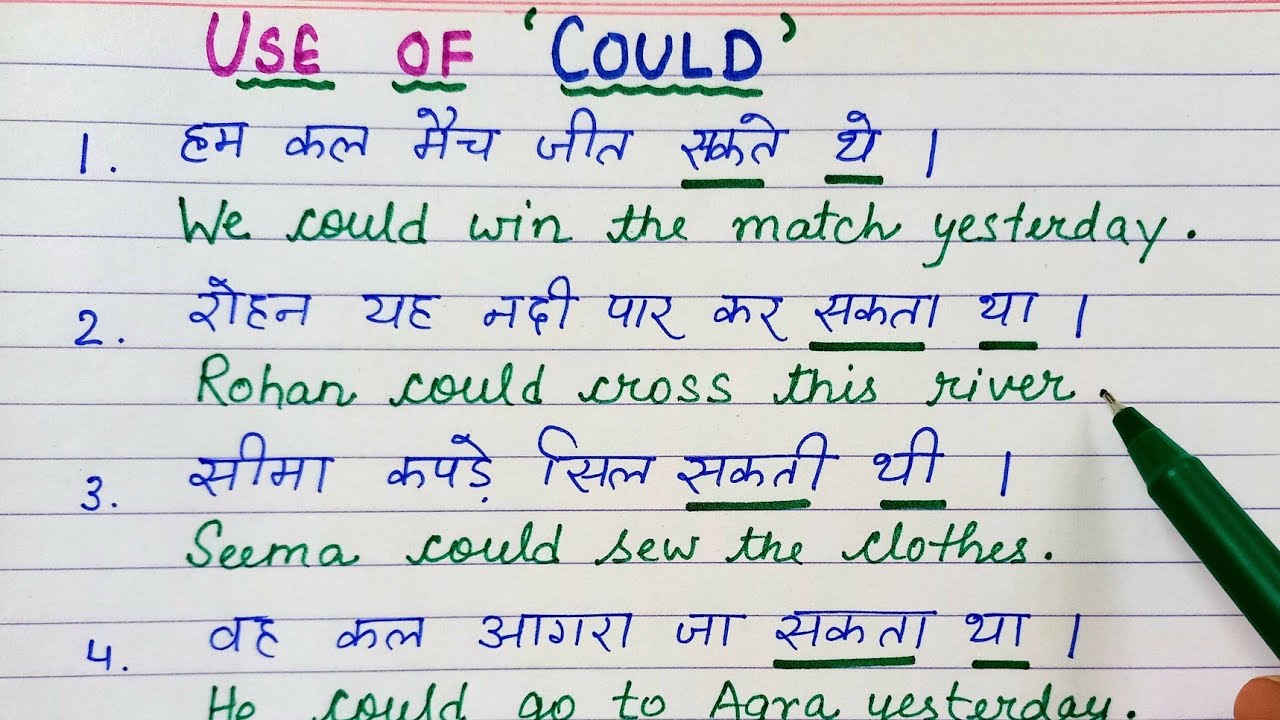 USE OF 'COULD'
1. हम कल मैच जीत सकते थे ।
We could win the match yesterday.
2. रोहन यह नदी पार कर सकता था ।
Rohan could cross this river.
3. सीमा कपड़े सिल सकती थी ।
Seema could sew the clothes.
4. वह कल आगरा जा सकता था ।
He could go to Agra yesterday.